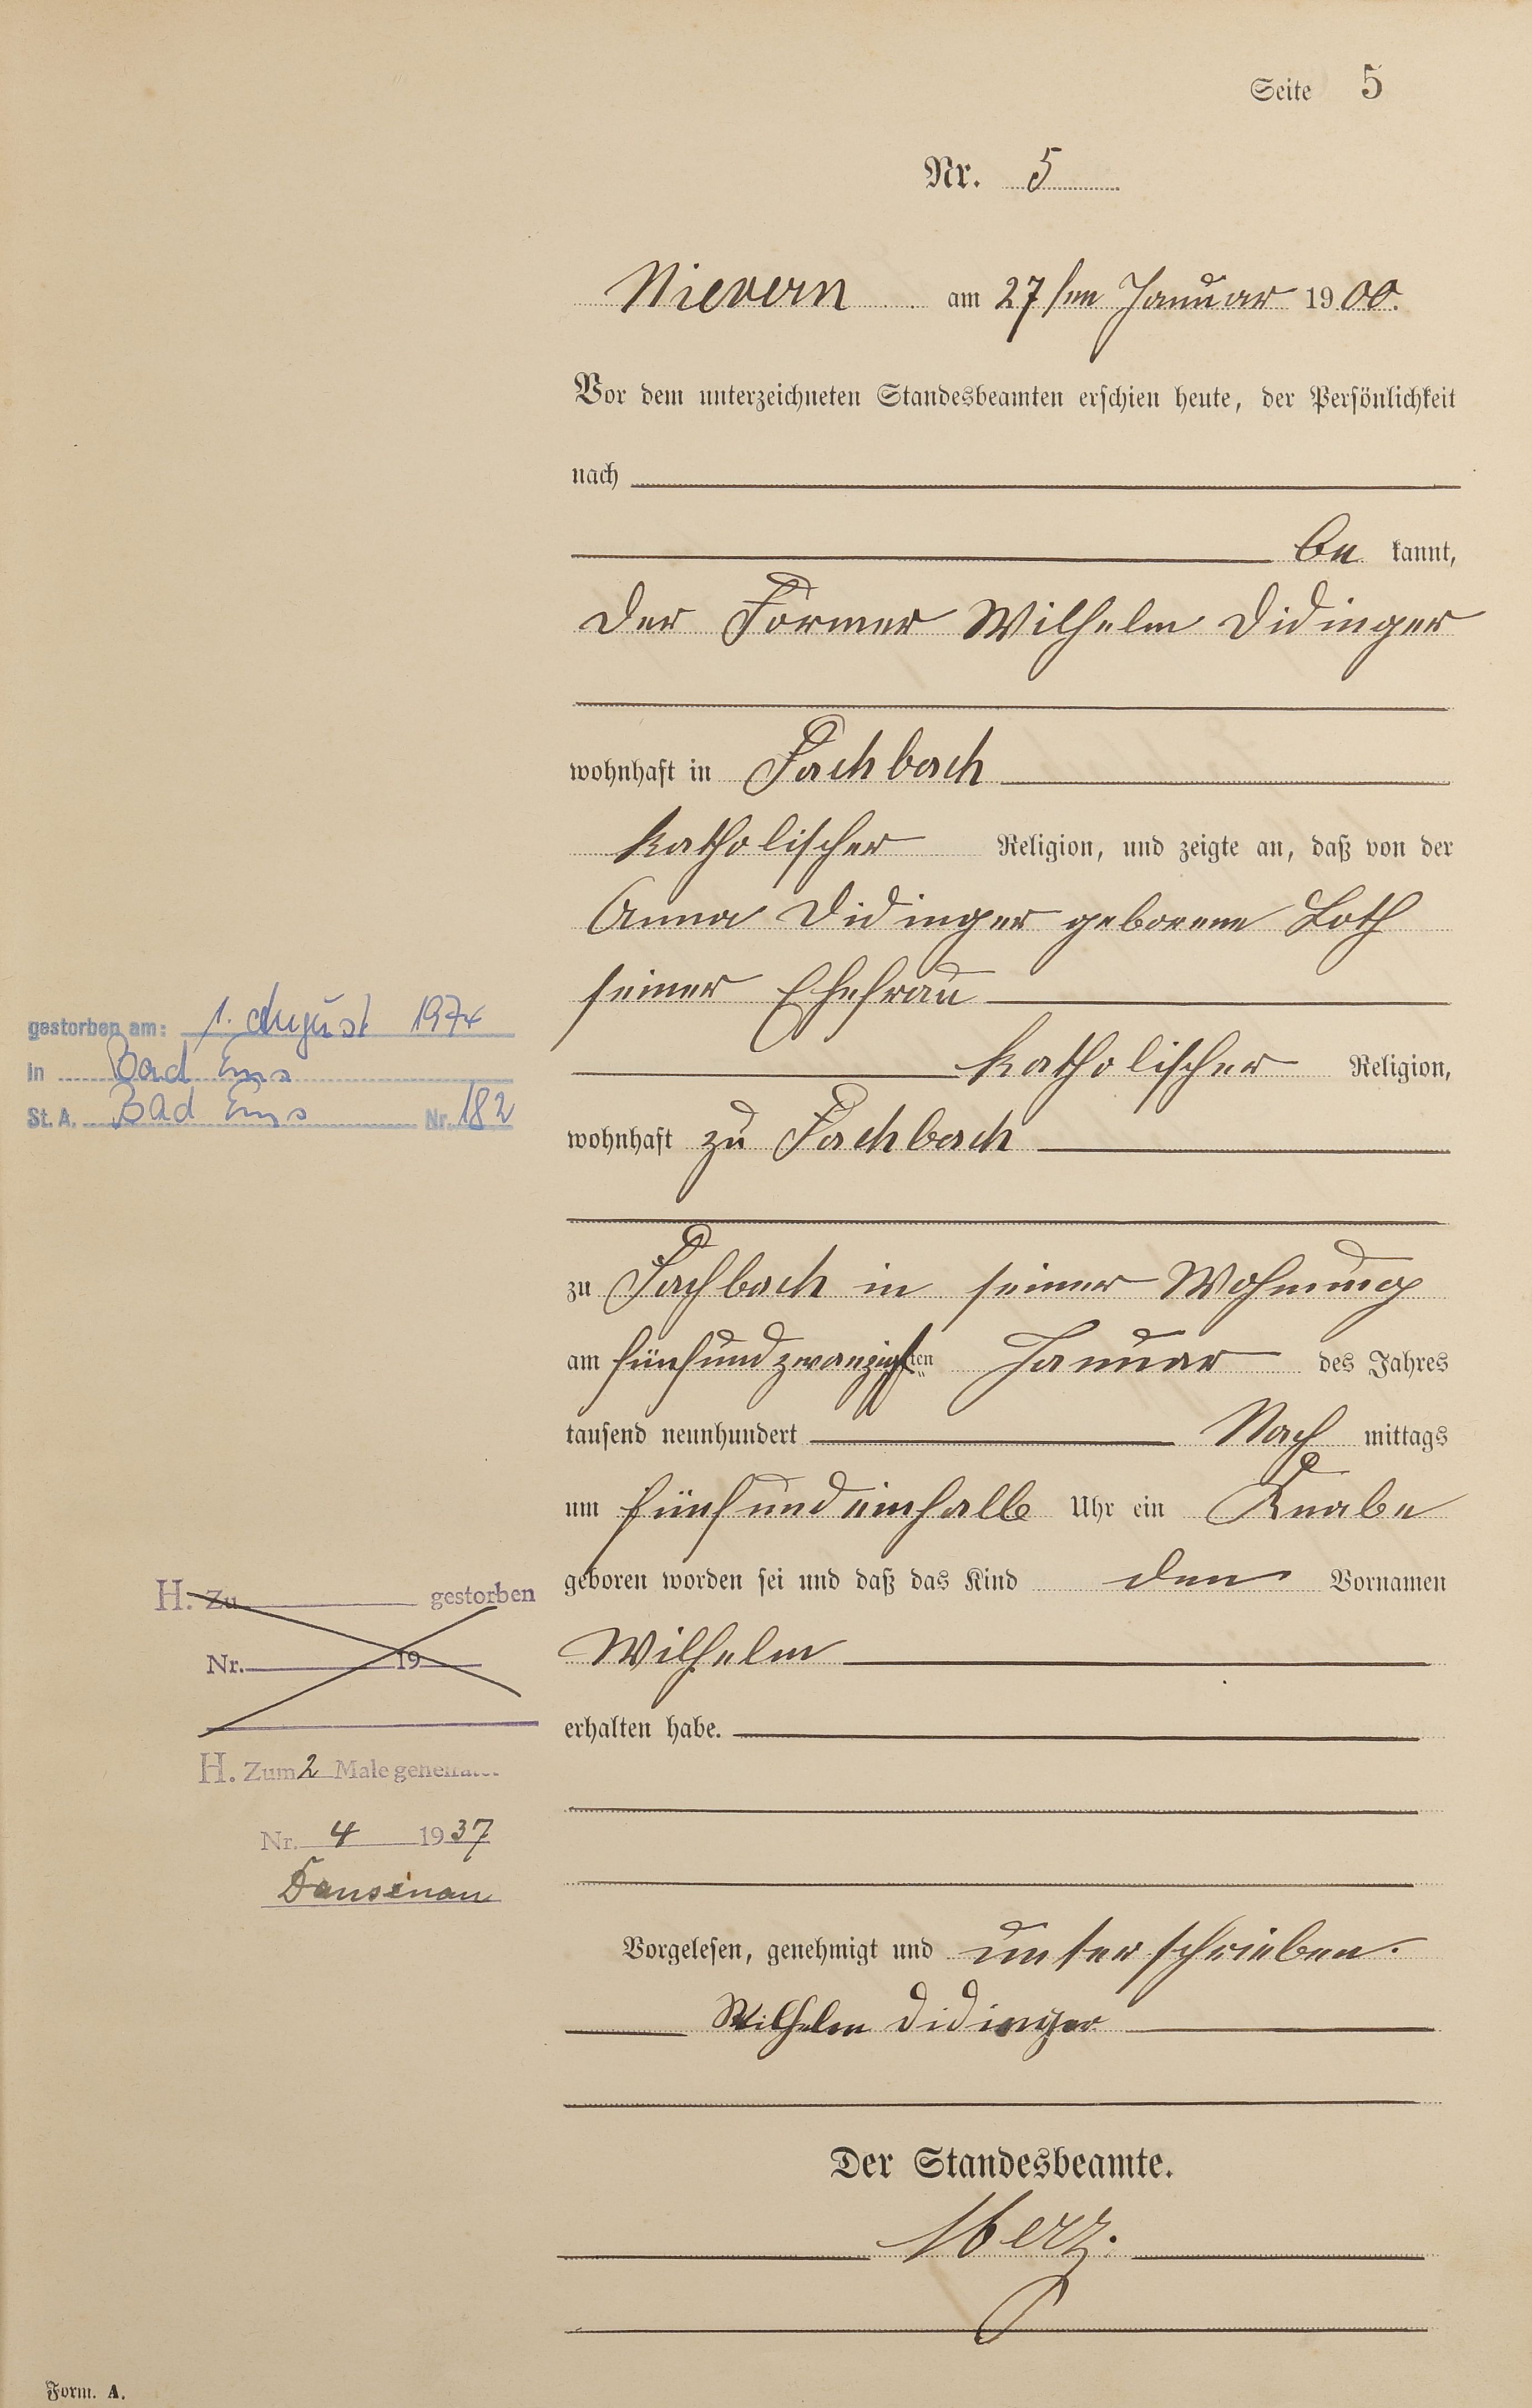 Seite 5
Nr. 5
Nievern am 27ten Januar 1900.
Vor dem unterzeichneten Standesbeamten erschien heute, der Persönlichkeit
nach
be kannt,
der Former Wilhelm Didinger
wohnhaft in Fachbach
katholischer Religion, und zeigte an, daß von der
Anna Didinger geborene Loth
seiner Ehefrau
katholischer Religion,
wohnhaft zu Fachbach
zu Fachbach in seiner Wohnung
am fünfundzwanzigsten Januar des Jahres
tausend neunhundert Nach mittags
um fünfundeinhalb Uhr ein Knabe
geboren worden sei und daß das Kind den Vornamen
Wilhelm
erhalten habe.
Vorgelesen, genehmigt und unterschrieben.
Wilhelm Didinger
Der Standesbeamte.
gestorben am: 1. August 1974
in Bad Ems
St. A. Bad Ems Nr. 182
H. Zu gestorben
Nr. 19
H. Zum 2 Male geheiratet
Nr. 4 1937
Dausenau
Form. A.